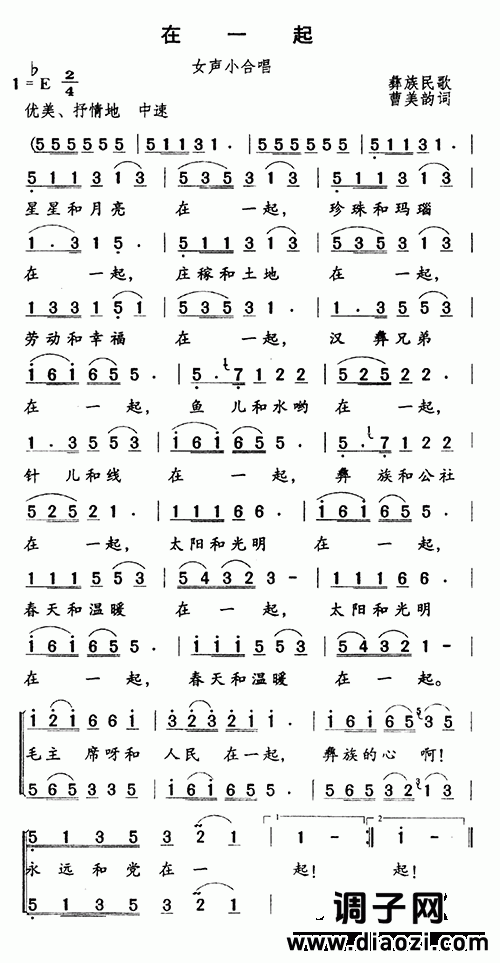 在一起
女声小合唱
1=♭E 2/4
彝族民歌
曹美韵词
优美、抒情地 中速
(555555 | 51131. | 555555 | 51131. |
511313 | 535313 | 511313 |
星星和月亮 在一起, 珍珠和玛瑙
1.315. | 511313 | 53531. |
在一起, 庄稼和土地 在一起,
133151 | 53531. | 1.3553 |
劳动和幸福 在一起, 汉彝兄弟
161655. | 5.7122 | 52522. |
在一起, 鱼儿和水哟 在一起,
1.3553 | 161655. | 5.7122 |
针儿和线 在一起, 彝族和公社
52521. | 11166 | 161655. |
在一起, 太阳和光明 在一起,
111553 | 54323- | 11166 |
春天和温暖 在一起, 太阳和光明
161655. | 111553 | 54321- |
在一起, 春天和温暖 在一起。
121661 | 323211. | 16165535 |
毛主席呀和 人民在一起, 彝族的心啊!
565335 | 161655. | 56532313 |
5135 | 5135 | 321 | 1- :‖ 1- ‖
永远和党在一起! 起!
5135 | 5135 | 321
调子网
www.diaozi.com